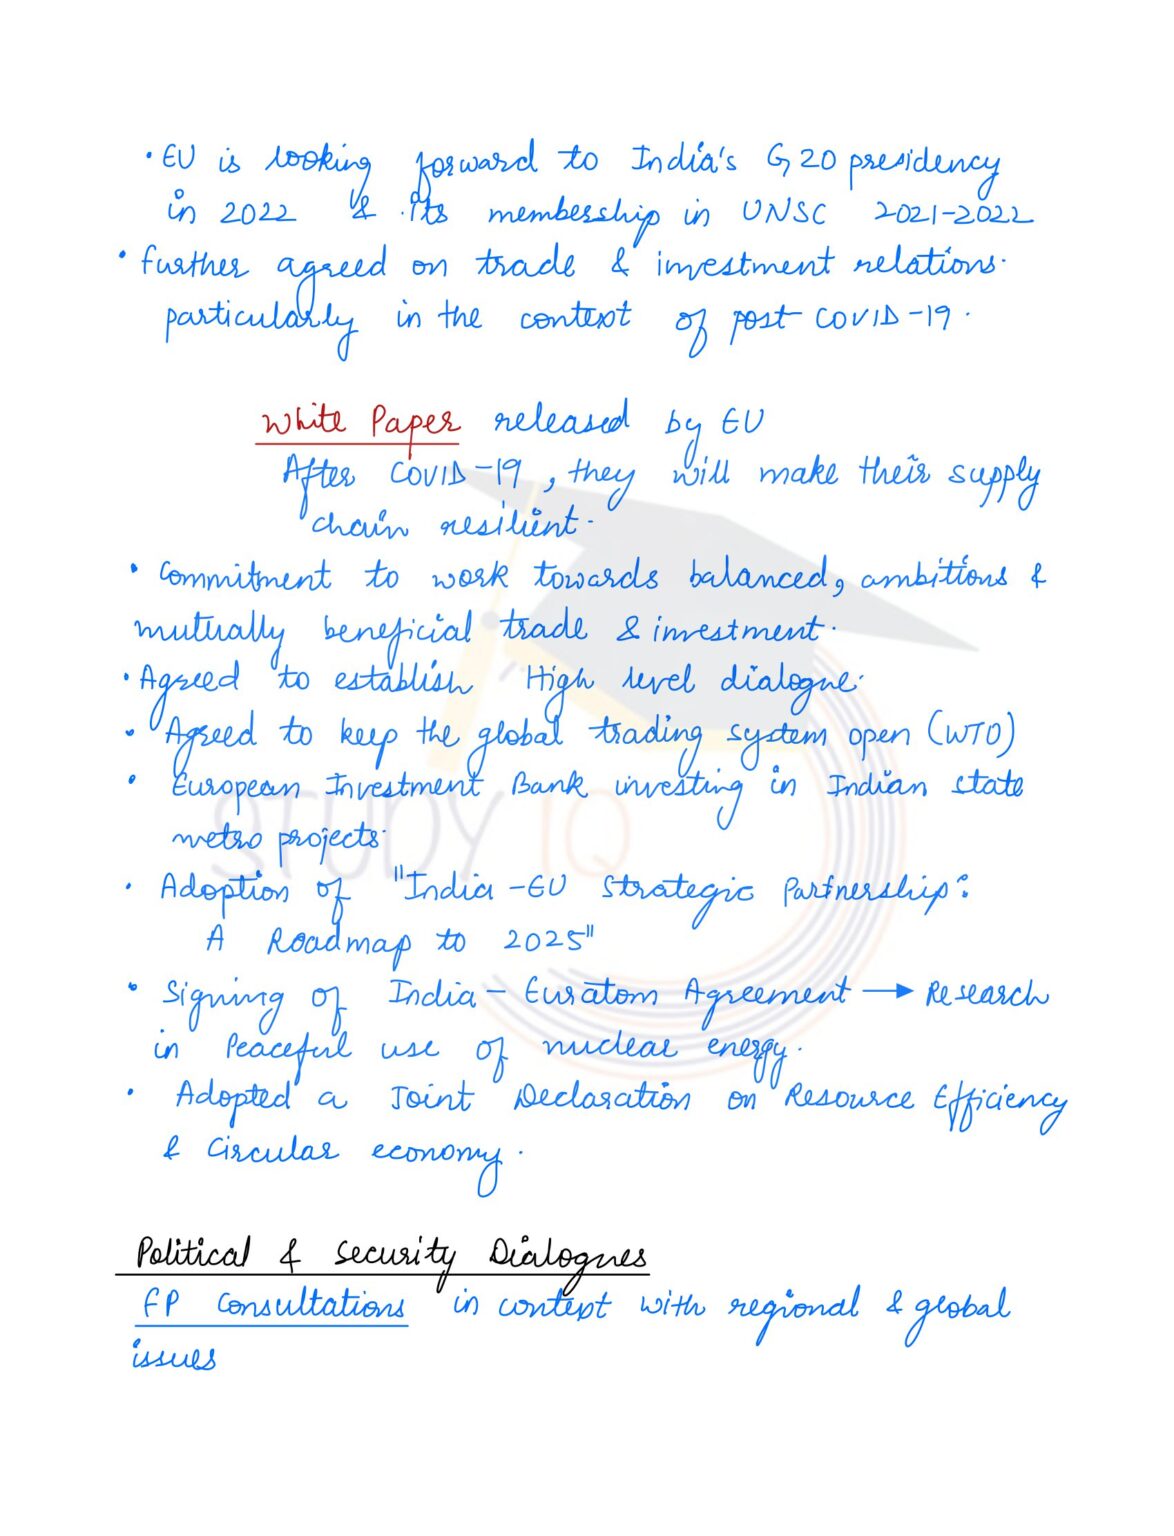 • EU is looking forward to India's G20 presidency
in 2022 & its membership in UNSC 2021-2022
• further agreed on trade & investment relations.
particularly in the context of post COVID-19.
White Paper released by EU
After COVID-19, they will make their supply
chain resilient.
• Commitment to work towards balanced, ambitions &
mutually beneficial trade & investment.
• Agreed to establish High level dialogue.
• Agreed to keep the global trading system open (WTO)
• European Investment Bank investing in Indian state
metro projects.
• Adoption of "India-EU Strategic Partnership:
A Roadmap to 2025"
• Signing of India - Euratom Agreement → Research
in Peaceful use of nuclear energy.
• Adopted a Joint Declaration on Resource Efficiency
& Circular economy.
Political & Security Dialogues
FP Consultations in context with regional & global
issues
STUDY IQ